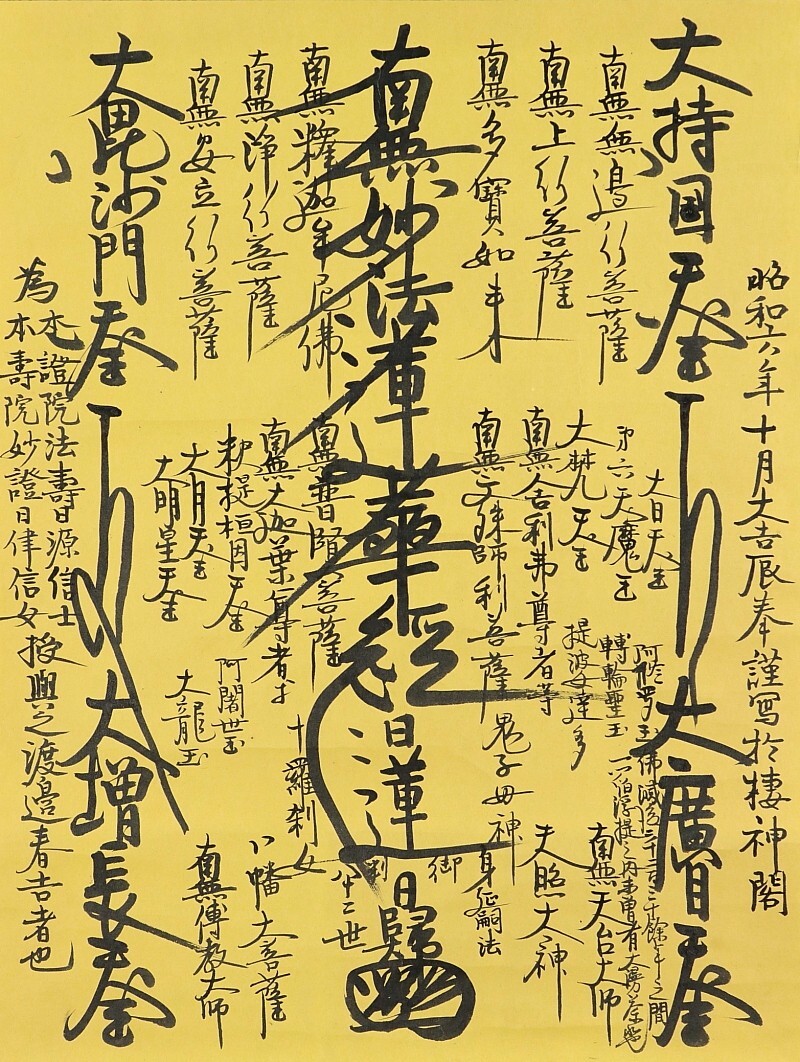 昭和六八年十月大吉辰奉謹寫於棲神閣
大持國天王
大廣目天王
南無無邊行菩薩
南無上行菩薩
南無多寶如来
南無妙法蓮華經
日蓮
日歸
御判
身延嗣法
八十二世
南無釋迦牟尼佛
南無淨行菩薩
南無安立行菩薩
大毘沙門天王
大日天王
第六天魔王
大梵天王
南無舎利弗尊者等
南無文殊師利菩薩
南無普賢菩薩
南無大迦葉尊者等
釈提桓因天王
大月天王
大明星天王
阿修羅王
轉輪聖王
提婆達多
鬼子母神
十羅刹女
阿闍世王
大龍王
佛滅後二千二百二十餘年之間
一閻浮提之内未曾有大曼荼羅
南無天台大師
天照大神
八幡大菩薩
南無傳教大師
大増長天王
為本證院法壽日源信士
本壽院妙證日律信女
授與之渡邉春吉者也